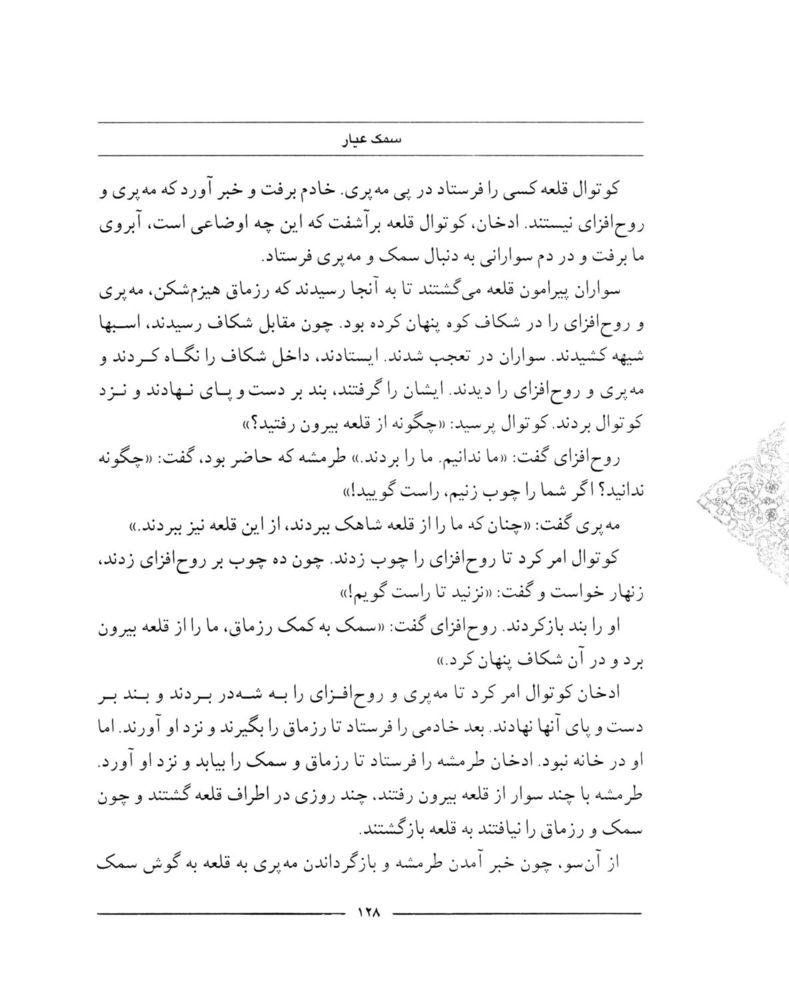 سمک عیار
کوتوال قلعه کسی را فرستاد در پی مه‌پری. خادم برفت و خبر آورد که مه‌پری و
روح‌افزای نیستند. ادخان، کوتوال قلعه برآشفت که این چه اوضاعی است، آبروی
ما برفت و در دم سوارانی به دنبال سمک و مه‌پری فرستاد.
سواران پیرامون قلعه می‌گشتند تا به آنجا رسیدند که رزماق هیزم‌شکن، مه‌پری
و روح‌افزای را در شکاف کوه پنهان کرده بود. چون مقابل شکاف رسیدند، اسبها
شیهه کشیدند. سواران در تعجب شدند. ایستادند، داخل شکاف را نگاه کردند و
مه‌پری و روح‌افزای را دیدند. ایشان را گرفتند، بند بر دست و پای نهادند و نزد
کوتوال بردند. کوتوال پرسید: «چگونه از قلعه بیرون رفتید؟»
روح‌افزای گفت: «ما ندانیم. ما را بردند.» طرمشه که حاضر بود، گفت: «چگونه
ندانید؟ اگر شما را چوب زنیم، راست گویید!»
مه‌پری گفت: «چنان که ما را از قلعه شاهک ببردند، از این قلعه نیز ببردند.»
کوتوال امر کرد تا روح‌افزای را چوب زدند. چون ده چوب بر روح‌افزای زدند،
زنهار خواست و گفت: «نزنید تا راست گویم!»
او را بند بازکردند. روح‌افزای گفت: «سمک به کمک رزماق، ما را از قلعه بیرون
برد و در آن شکاف پنهان کرد.»
ادخان کوتوال امر کرد تا مه‌پری و روح‌افزای را به شه‌در بردند و بند بر
دست و پای آنها نهادند. بعد خادمی را فرستاد تا رزماق را بگیرند و نزد او آورند. اما
او در خانه نبود. ادخان طرمشه را فرستاد تا رزماق و سمک را بیابد و نزد او آورد.
طرمشه با چند سوار از قلعه بیرون رفتند، چند روزی در اطراف قلعه گشتند و چون
سمک و رزماق را نیافتند به قلعه بازگشتند.
از آن‌سو، چون خبر آمدن طرمشه و بازگرداندن مه‌پری به قلعه به گوش سمک
۱۲۸